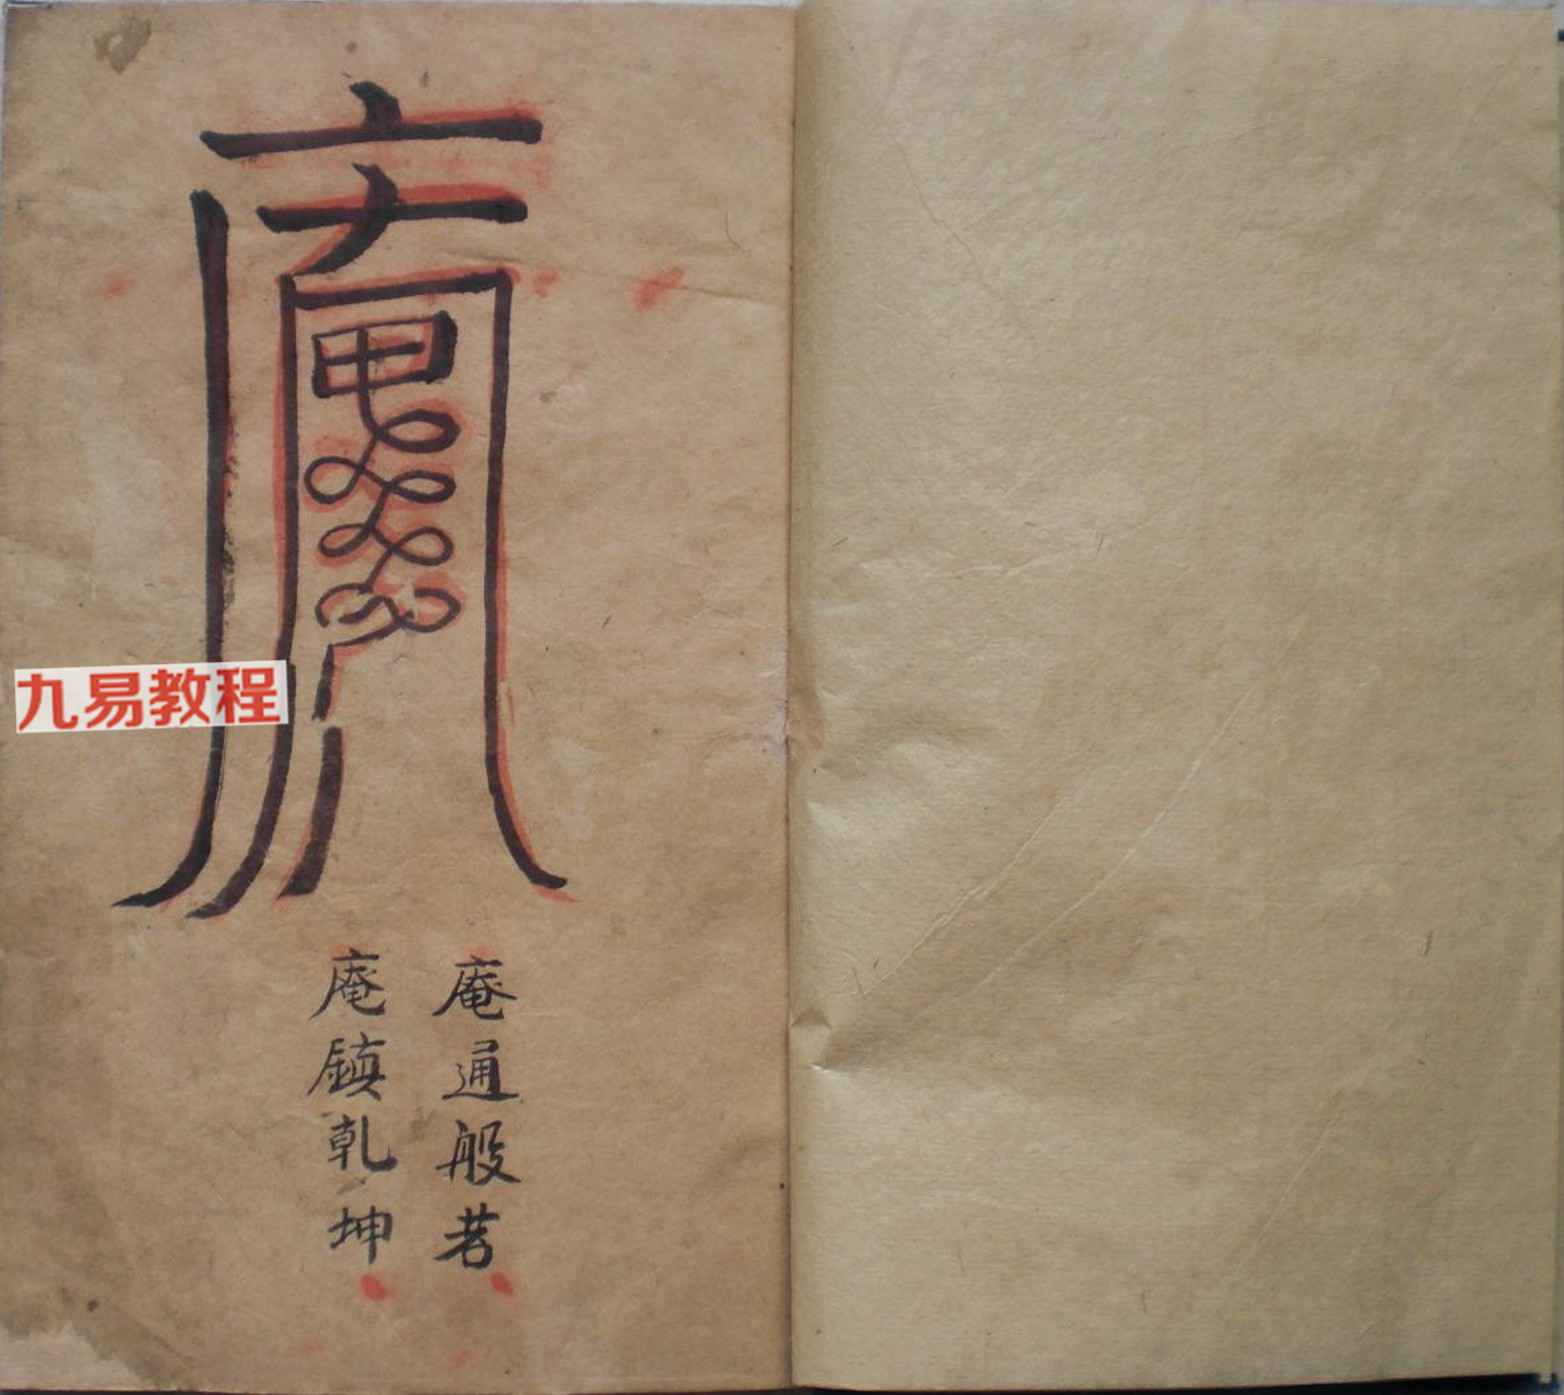 庵通般若
庵鎮乾坤
九易教程